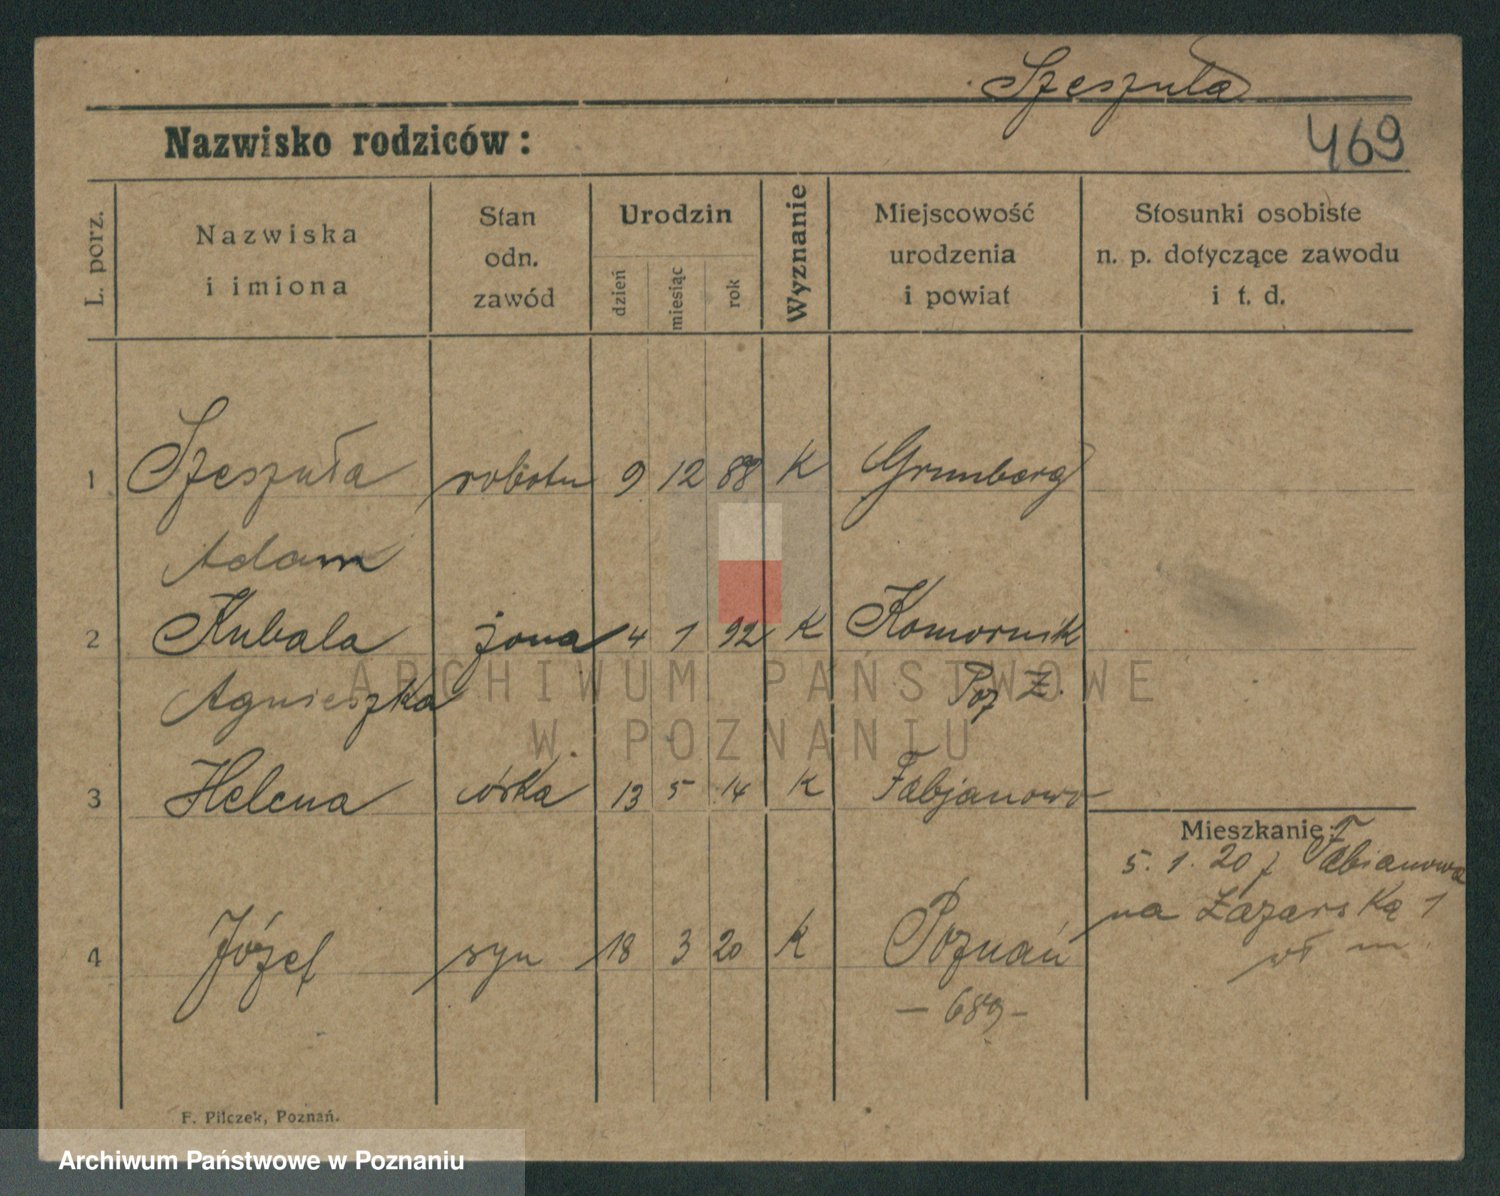 Szeszuła
Nazwisko rodziców:
469
L. porz.
Nazwiska
i imiona
Stan
odn.
zawód
Urodzin
dzień
miesiąc
rok
Wyznanie
Miejscowość
urodzenia
i powiat
Stosunki osobiste
n. p. dotyczące zawodu
i t. d.
1 Szeszuła robotn 9 12 88 K
Adam
2 Kubala żona 4 1 92 K Komornik
Agnieszka Poz Z.
3 Helena córka 13 5 14 K Fabjanowo
Mieszkanie:
5. 1. 20 z Fabianowa
na Łazarską 1
4 Józef syn 18 3 20 K Poznań
– 689 –
F. Pilczek, Poznań.
ARCHIWUM PAŃSTWOWE
W POZNANIU
Archiwum Państwowe w Poznaniu